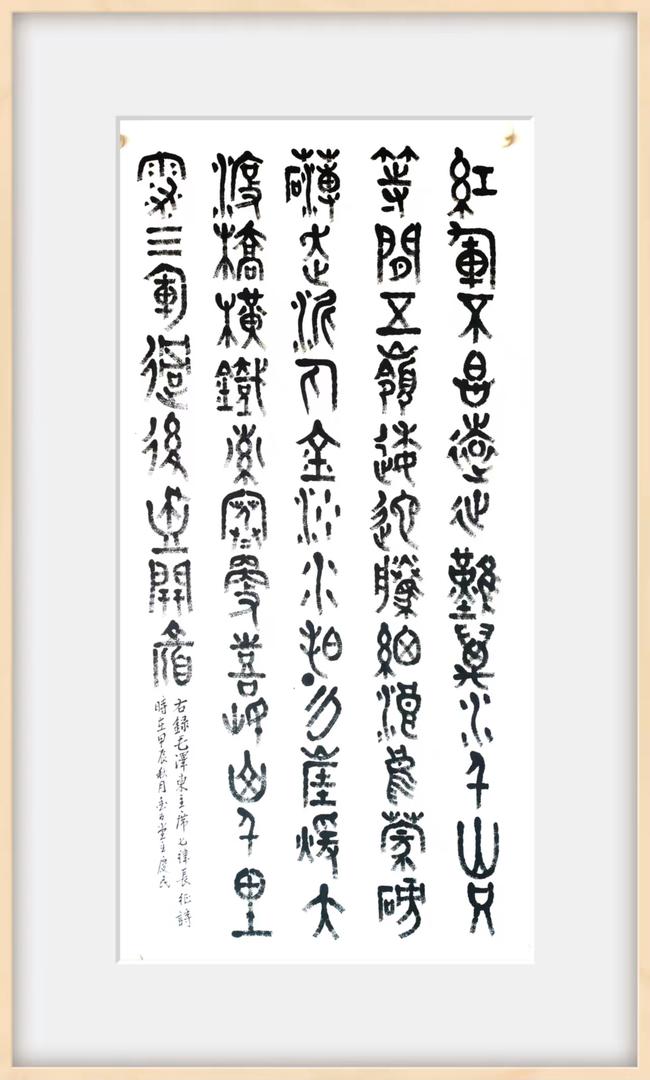 紅軍不怕遠征難萬水千山只
等間五嶺逶迤騰細浪烏蒙磅
礴走泥丸金沙水拍雲崖暖大
渡橋橫鐵索寒更喜岷山千里
雪三軍過後盡開顏
右錄毛澤東主席七律長征詩
時在甲辰秋月